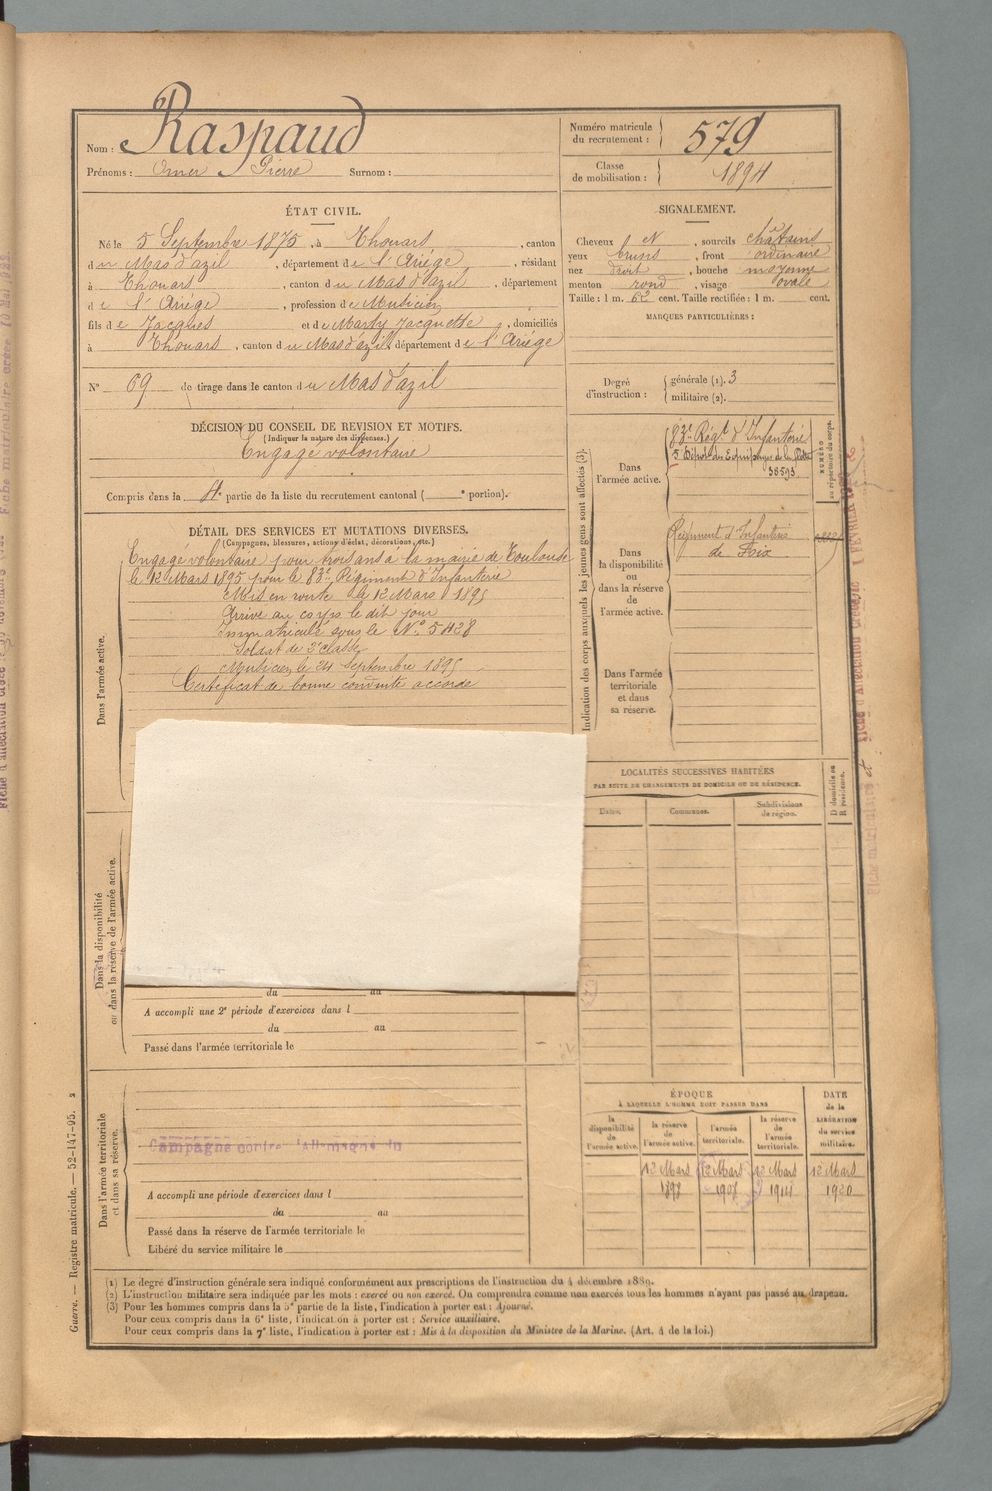 Nom : Raspaud
Prénoms : Omer Pierre Surnom :
Numéro matricule du recrutement : 579
Classe de mobilisation : 1894
ÉTAT CIVIL.
Né le 5 Septembre 1875, à Thouars, canton
du Mas d'azil, département de l'Ariège, résidant
à Thouars, canton du Mas d'azil, département
de l'Ariège, profession de Musicien
fils de Jacques et de Marty Jacquette, domiciliés
à Thouars, canton du Mas d'azil, département de l'Ariège
N° 69 de tirage dans le canton du Mas d'azil
DÉCISION DU CONSEIL DE REVISION ET MOTIFS.
(Indiquer la nature des dispenses.)
Engagé volontaire
Compris dans la 4e partie de la liste du recrutement cantonal ( e portion).
SIGNALEMENT.
Cheveux et, sourcils châtains
yeux bruns, front ordinaire
nez droit, bouche moyenne
menton rond, visage ovale
Taille : 1 m. 62 cent. Taille rectifiée : 1 m. cent.
MARQUES PARTICULIÈRES :
Degré d'instruction : générale (1). 3
militaire (2).
DÉTAIL DES SERVICES ET MUTATIONS DIVERSES.
(Campagnes, blessures, actions d'éclat, décorations, etc.)
Dans l'armée active.
Engagé volontaire pour trois ans à la mairie de Toulouse
le 12 Mars 1895 pour le 83e Régiment d'Infanterie
Mis en route le 12 Mars 1895
Arrivé au corps le dit jour
Immatriculé sous le N° 5428
Soldat de 2e classe
Musicien le 24 Septembre 1895
Certificat de bonne conduite accordé
Indication des corps auxquels les jeunes gens sont affectés (3).
NUMÉRO au répertoire du corps.
Dans l'armée active.
83e Régt d'Infanterie
5 Dépôt des Equipages de la Flotte
38593
Dans la disponibilité ou dans la réserve de l'armée active.
Régiment d'Infanterie
de Foix
Dans l'armée territoriale et dans sa réserve.
LOCALITÉS SUCCESSIVES HABITÉES
PAR SUITE DE CHANGEMENTS DE DOMICILE OU DE RÉSIDENCE.
Dates.
Communes.
Subdivisions de région.
D domicile ou R résidence.
Dans la disponibilité ou dans la réserve de l'armée active.
du au
A accompli une 2e période d'exercices dans l
du au
Passé dans l'armée territoriale le
Dans l'armée territoriale et dans sa réserve.
Campagne contre l'Allemagne du
A accompli une période d'exercices dans l
du au
Passé dans la réserve de l'armée territoriale le
Libéré du service militaire le
ÉPOQUE
À LAQUELLE L'HOMME DOIT PASSER DANS
la disponibilité de l'armée active.
la réserve de l'armée active.
l'armée territoriale.
la réserve de l'armée territoriale.
DATE de la LIBÉRATION du service militaire.
12 Mars 1898
12 Mars 1908
12 Mars 1914
12 Mars 1920
(1) Le degré d'instruction générale sera indiqué conformément aux prescriptions de l'instruction du 4 décembre 1889.
(2) L'instruction militaire sera indiquée par les mots : exercé ou non exercé. On comprendra comme non exercés tous les hommes n'ayant pas passé au drapeau.
(3) Pour les hommes compris dans la 5e partie de la liste, l'indication à porter est : Ajourné.
Pour ceux compris dans la 6e liste, l'indication à porter est : Service auxiliaire.
Pour ceux compris dans la 7e liste, l'indication à porter est : Mis à la disposition du Ministre de la Marine. (Art. 4 de la loi.)
Guerre. — Registre matricule. — 52-147-95.